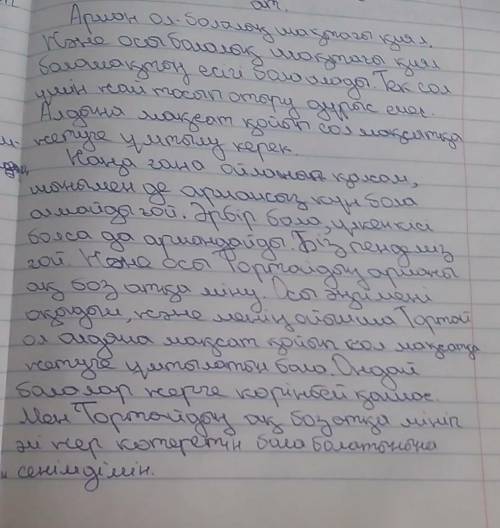 ат.
Арман ол-балалық шақтағы қиял.
Және осы балалық шақтағы қиял
болашақтың есігі бола алады. Тек сол
үшін жай тосып отыру дұрыс емес.
Алдыңа мақсат қойып сол мақсатқа
жетуге ұмтылу керек.
Жаңа ғана ойланып қалсам,
шынымен де армансыз күн бола
алмайды ғой. Әрбір бала, үлкен кісі
болса да армандайды. Біз пендеміз
ғой. Және осы Тортайдың арманы
ақ боз атқа міну. Осы әңгімені
оқыдым, және менің ойымша Тортай
ол алдына мақсат қойып сол мақсатқа
жетуге ұмтылатын бала. Ондай
балалар жерге көрінбей қалмас.
Мен Тортайдың ақ боз атқа мініп
әлі жер көтеретін бала болатынына
сенімдімін.